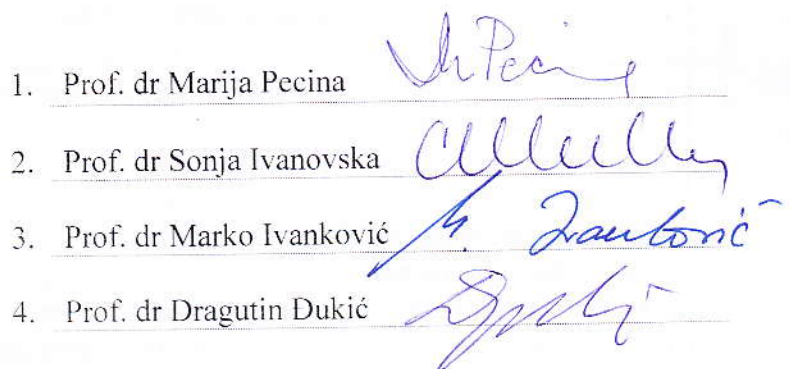 1. Prof. dr Marija Pecina M Pecina
2. Prof. dr Sonja Ivanovska
3. Prof. dr Marko Ivanković M. Ivanković
4. Prof. dr Dragutin Đukić